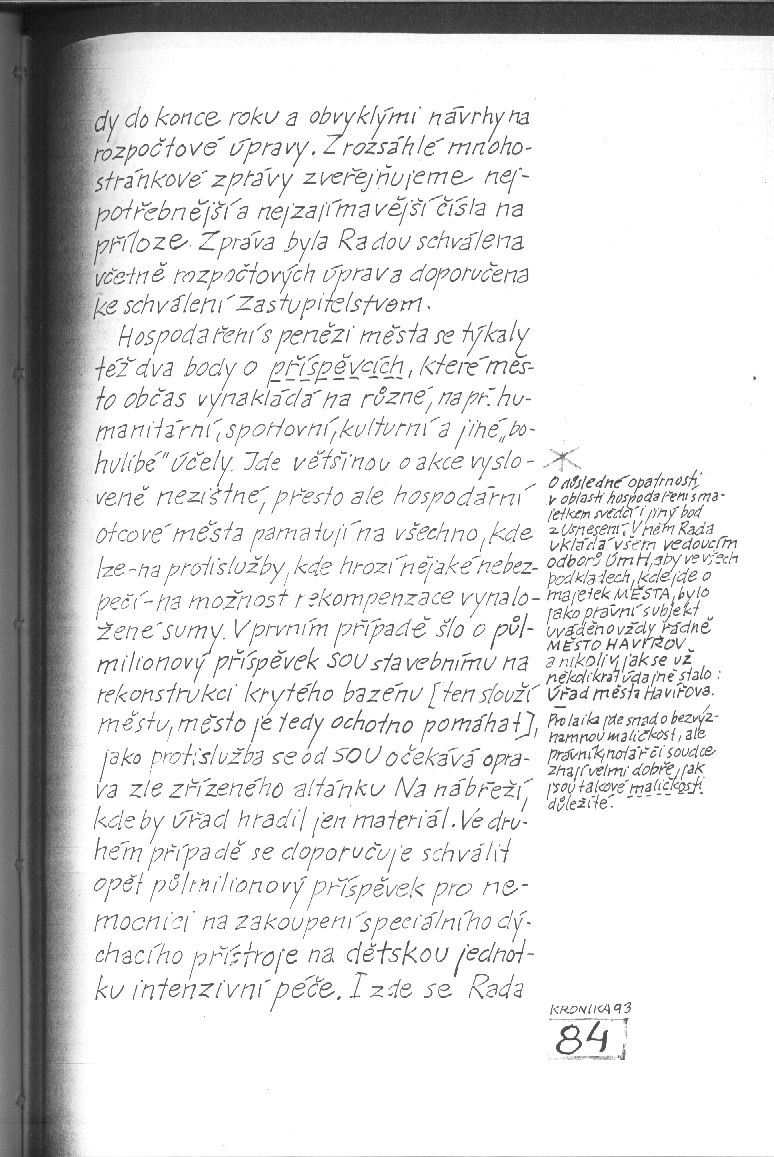 dy do konce roku a obvyklými návrhy na
rozpočtové úpravy. Z rozsáhlé mnoho-
stránkové zprávy zveřejňujeme nej-
potřebnější a nejzajímavější čísla na
příloze. Zpráva byla Radou schválena
včetně rozpočtových úprav a doporučena
ke schválení Zastupitelstvem.
Hospodaření s penězi města se týkaly
též dva body o příspěvcích, které měs-
to občas vynakládá na různé, např. hu-
manitární, sportovní, kulturní a jiné „bo-
hulibé" účely. Jde většinou o akce vyslo-
veně nezištné, přesto ale hospodární
otcové města pamatují na všechno, kde
lze - na protislužby, kde hrozí nějaké nebez-
pečí - na možnost rekompenzace vynalo-
žené sumy. V prvním případě šlo o půl-
milionový příspěvek SOU stavebnímu na
rekonstrukci krytého bazénu [ten slouží
městu, město je tedy ochotno pomáhat],
jako protislužba se od SOU očekává opra-
va zle zřízeného altánku Na nábřeží,
kde by úřad hradil jen materiál. Ve dru-
hém případě se doporučuje schválit
opět půlmilionový příspěvek pro ne-
mocnici na zakoupení speciálního dý-
chacího přístroje na dětskou jednot-
ku intenzivní péče. I zde se Rada
O důsledné opatrnosti
v oblasti hospodaření s ma-
jetkem svědčí i jiný bod
z usnesení. V něm Rada
ukládá všem vedoucím
odborů ÚmH, aby ve všech
podkladech, kde jde o
majetek MĚSTA, bylo
jako právní subjekt
uváděno vždy řádně
MĚSTO HAVÍŘOV
a nikoliv, jak se už
několikrát údajně stalo:
Úřad města Havířova.
Pro laika jde snad o bezvýz-
namnou maličkost, ale
právník, notář či soudce
znají velmi dobře, jak
jsou takové maličkosti
důležité.
KRONIKA 93
84